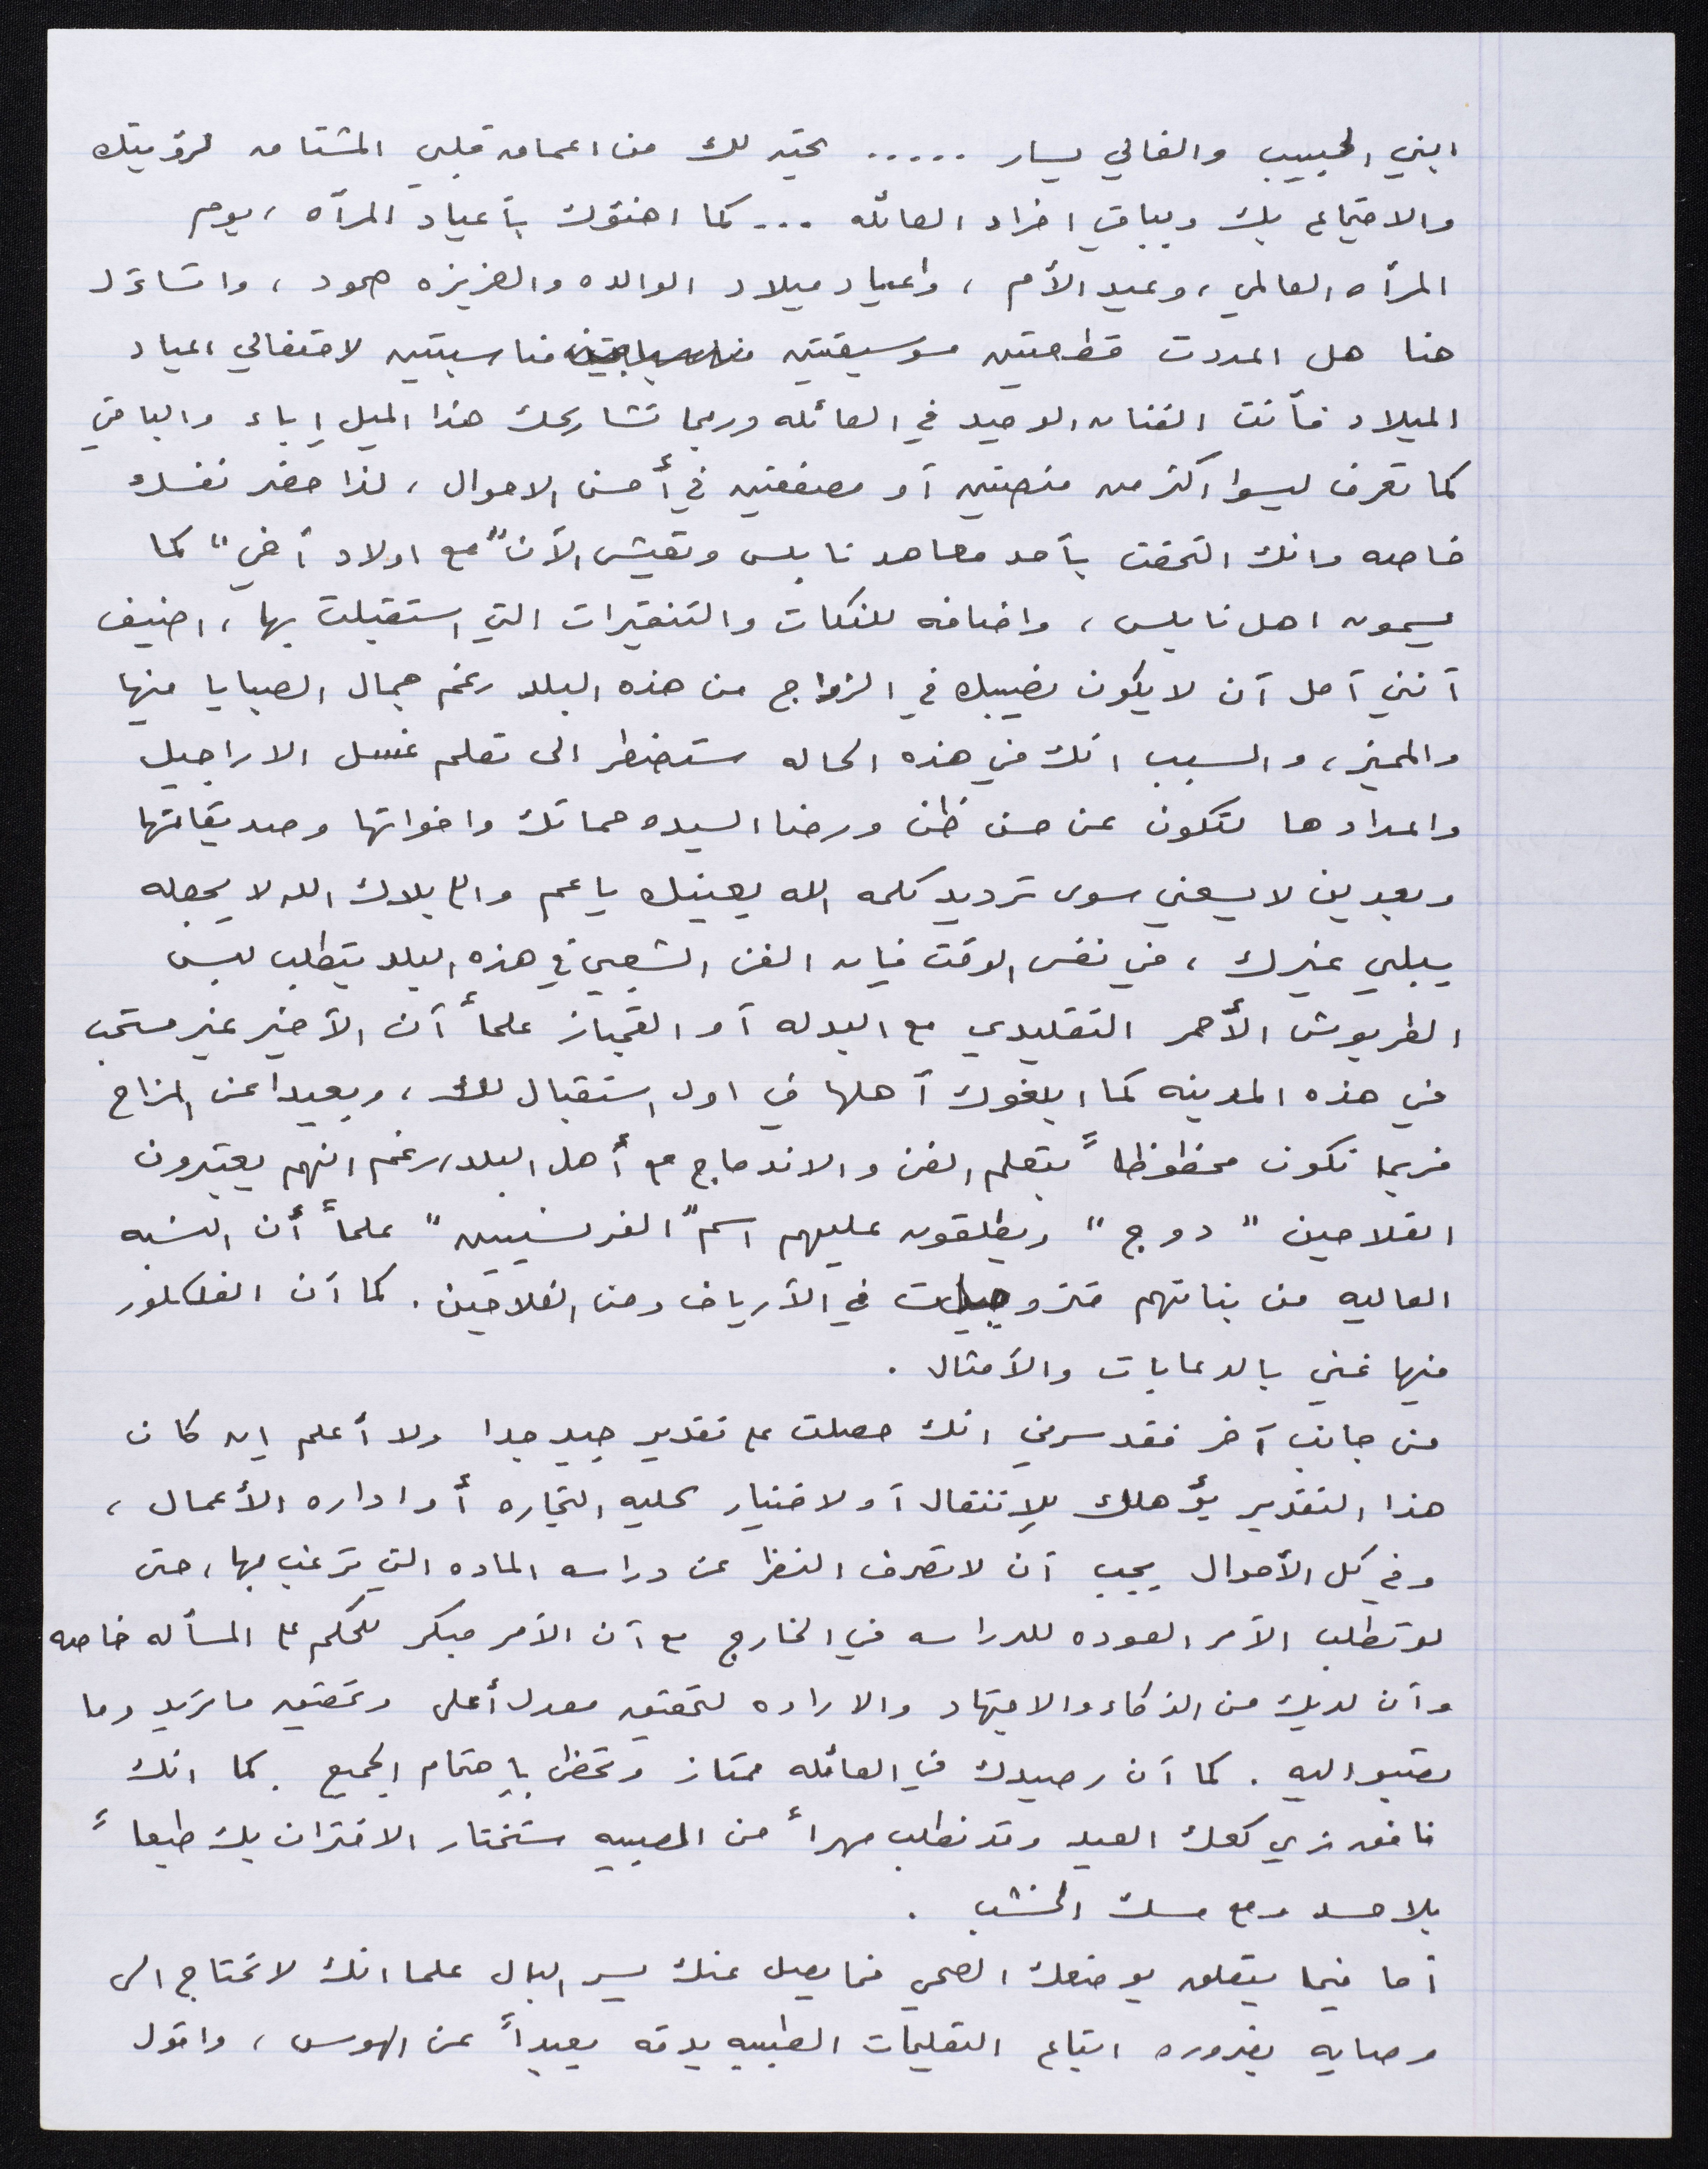 ابني الحبيب والغالي يسار ..... تحيه لك من اعماق قلبي المشتاق لرؤيتك
والاجتماع بك وبباقي افراد العائله ... كما اهنؤك بأعياد المرأه ، يوم
المرأه العالمي ، وعيد الأم ، واعياد ميلاد الوالده والعزيزه صمود ، واتساءل
هنا هل اعددت قطعتين موسيقيتين مناسبتين لاحتفالي اعياد
الميلاد فأنت الفنان الوحيد في العائله وربما تشاركك هذا الميل إباء والباقي
كما تعرف ليسوا اكثر من منصتين أو مصفقين في أحسن الاحوال ، لذا حضر نفسك
خاصه وانك التحقت بأحد معاهد نابلس وتعيش الآن "مع اولاد أخي" كما
يسمون اهل نابلس ، واضافه للنكات والتنقيرات التي استقبلت بها ، اضيف
أنني آمل أن لا يكون نصيبك في الزواج من هذه البلد رغم جمال الصبايا فيها
والمميز ، والسبب انك في هذه الحاله ستضطر الى تعلم غسل الاراجيل
واعدادها لتكون عن حسن ظن ورضا السيده حماتك واخواتها وصديقاتها
وبعدين لا يسعني سوى ترديد كلمه الله يعينك يا عم والي بلاك الله لا يجعله
يبلي غيرك ، في نفس الوقت فإن الفن الشعبي في هذه البلد يتطلب لبس
الطربوش الأحمر التقليدي مع البدله أو القمباز علماً أن الأخير غير مستحب
في هذه المدينه كما ابلغوك أهلها في اول استقبال لك ، وبعيدا عن المزاح
فربما تكون محظوظاً بتعلم الفن والاندماج مع أهل البلد رغم انهم يعتبرون
الفلاحين "دوج" ويطلقون عليهم اسم "الفرنسيين" علماً أن النسبه
العاليه من بناتهم متزوجات في الأرياف ومن الفلاحين . كما أن الفلكلور
فيها غني بالدعابات والأمثال .
من جانب آخر فقد سرني انك حصلت على تقدير جيد جدا ولا أعلم إن كان
هذا التقدير يؤهلك للإنتقال أو لاختيار كليه التجاره أو اداره الأعمال ،
وفي كل الأحوال يجب أن لا تصرف النظر عن دراسه الماده التي ترغب بها ، حتى
لو تطلب الأمر العوده للدراسه في الخارج مع أن الأمر مبكر للحكم على المسأله خاصه
وأن لديك من الذكاء والاجتهاد والاراده لتحقيق معدل أعلى وتحقيق ما تريد وما
تصبو اليه . كما أن رصيدك في العائله ممتاز وتحظى بإهتمام الجميع . كما انك
نافق زي كعك العيد وقد نطلب مهراً من الصبيه ستختار الاقتران بك طبعاً
بلا حسد ومع مسك الخشب .
أما فيما يتعلق بوضعك الصحي فما يصل عنك يسر البال علما انك لا تحتاج الى
وصايه بضروره اتباع التعليمات الطبيه بدقه بعيداً عن الهوس ، واقول